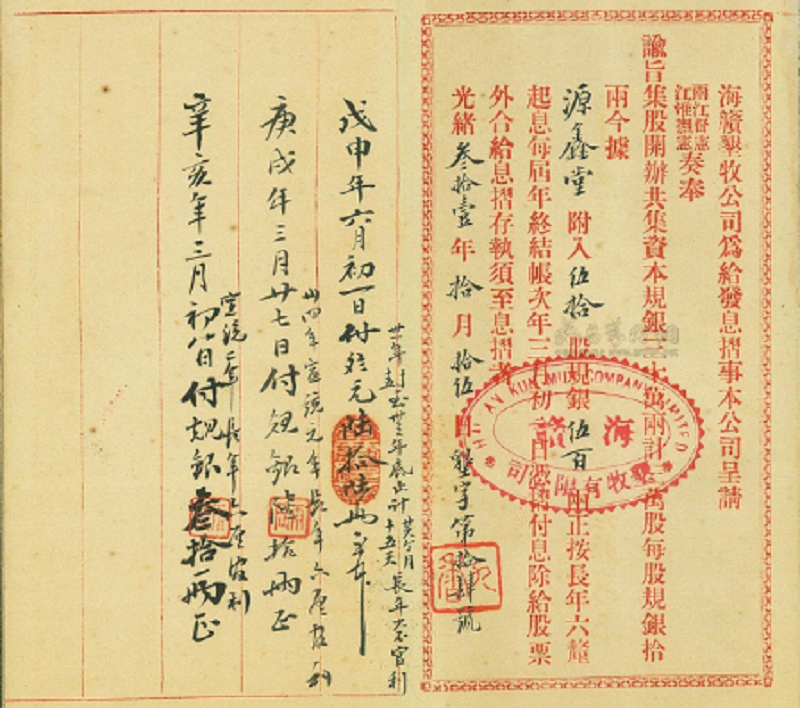 海贛墾牧公司為給發息摺事本公司呈請
兩江督憲
江淮撫憲
奏奉
諭旨集股開辦共集資本規銀 萬兩計 萬股每股規銀拾
兩今據
源鑫堂 附入伍拾 股規銀伍百 兩正按長年六釐
起息每屆年終結帳次年三月初一日憑摺付息除給股票
外合給息摺存執須至息摺者
光緒叁拾壹年拾月拾伍日墾字第拾肆號
HAI KUNG MUH COMPANY LIMITED
海贛
墾牧有限公司
戊申年六月初一日付 元陸拾陸兩
戌年三月廿七日付規銀陸拾兩正
卅四年宣統元年長年六厘官利
辛亥年三月初八日付規銀叁拾兩正
宣統二年長年六厘官利